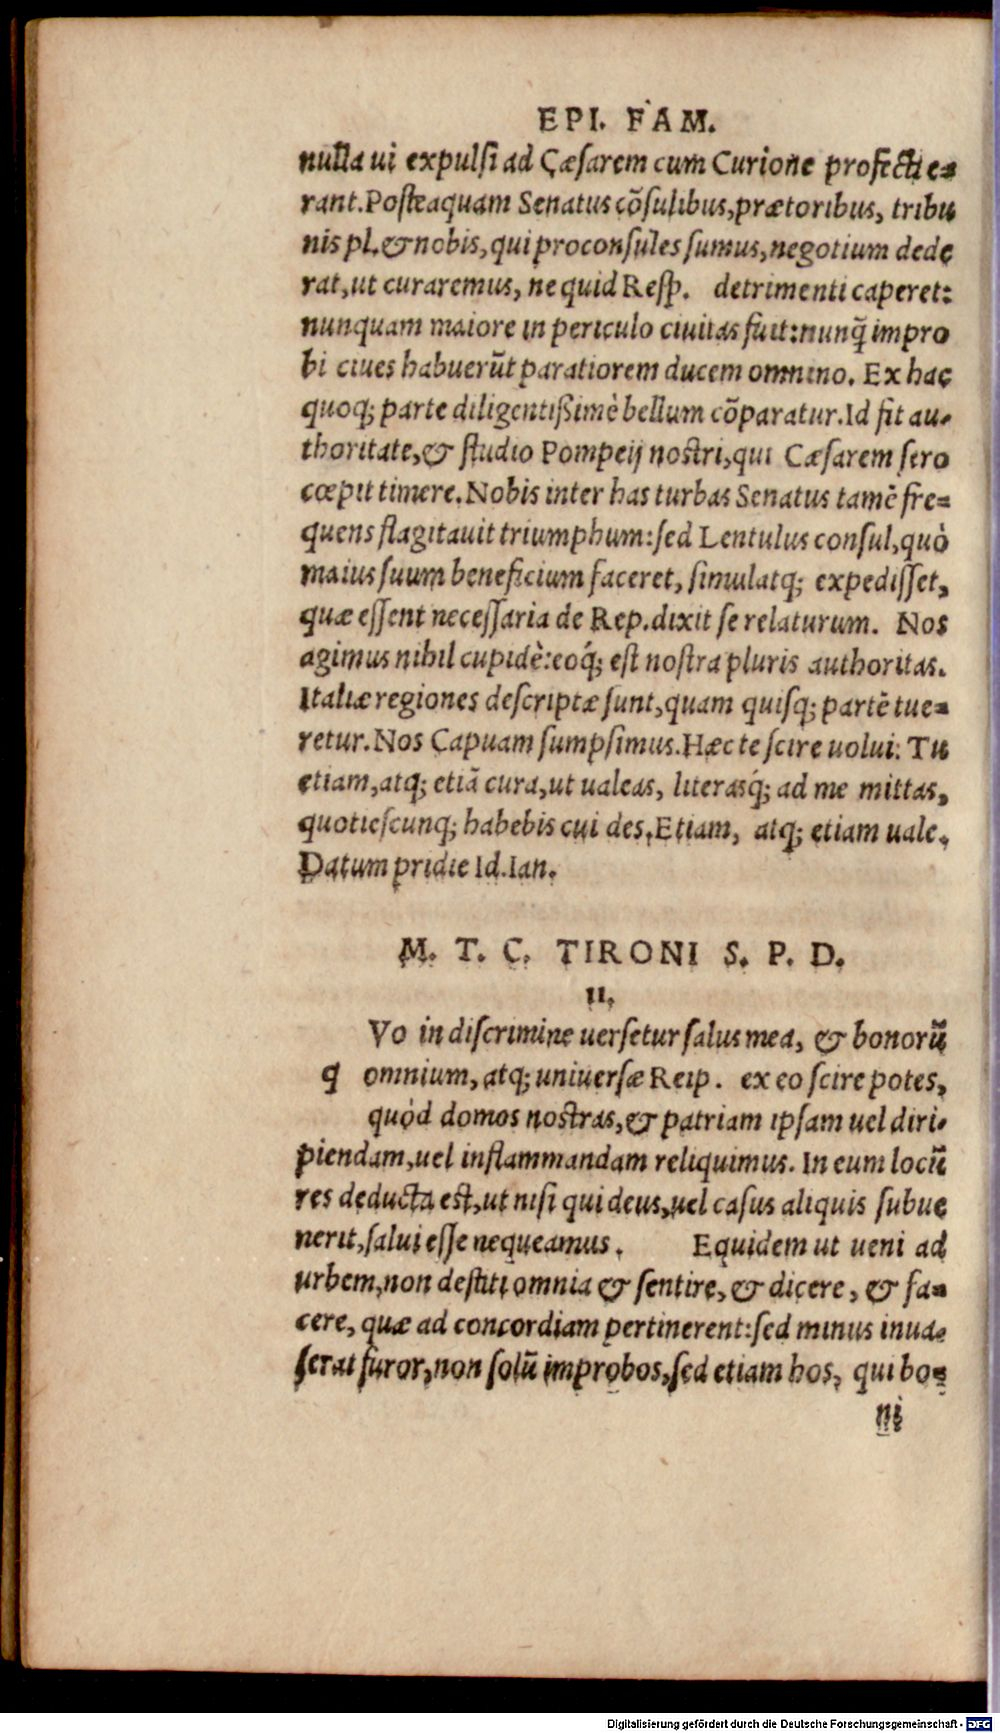 EPI. FAM.
nulla ui expulsi ad Cæsarem cum Curione profecti e=
rant. Posteaquam Senatus cõsulibus, prætoribus, tribu
nis pl. & nobis, qui proconsules sumus, negotium dede
rat, ut curaremus, ne quid Resp. detrimenti caperet:
nunquam maiore in periculo ciuitas fuit: nunq̃ impro
bi ciues habuerũt paratiorem ducem omnino. Ex hac
quoq; parte diligentißimè bellum cõparatur. Id fit au=
thoritate, & studio Pompeij nostri, qui Cæsarem sero
cœpit timere. Nobis inter has turbas Senatus tamẽ fre=
quens flagitauit triumphum: sed Lentulus consul, quò
maius suum beneficium faceret, simulatq; expedisset,
quæ essent necessaria de Rep. dixit se relaturum. Nos
agimus nihil cupidè: eoq́; est nostra pluris authoritas.
Italiæ regiones descriptæ sunt, quam quisq; partẽ tue=
retur. Nos Capuam sumpsimus. Hæc te scire uolui: Tu
etiam, atq; etiã cura, ut ualeas, literasq́; ad me mittas,
quotiescunq; habebis cui des. Etiam, atq; etiam uale.
Datum pridie Id. Ian.
M. T. C. TIRONI S. P. D.
II.
Vo in discrimine uersetur salus mea, & bonorũ
q omnium, atq; uniuersæ Reip. ex eo scire potes,
quòd domos nostras, & patriam ipsam uel diri=
piendam, uel inflammandam reliquimus. In eum locũ
res deducta est, ut nisi qui deus, uel casus aliquis subue
nerit, salui esse nequeamus. Equidem ut ueni ad
urbem, non destiti omnia & sentire, & dicere, & fa=
cere, quæ ad concordiam pertinerent: sed minus inua=
serat furor, non solũ improbos, sed etiam hos, qui bo=
ni
Digitalisierung gefördert durch die Deutsche Forschungsgemeinschaft - DFG